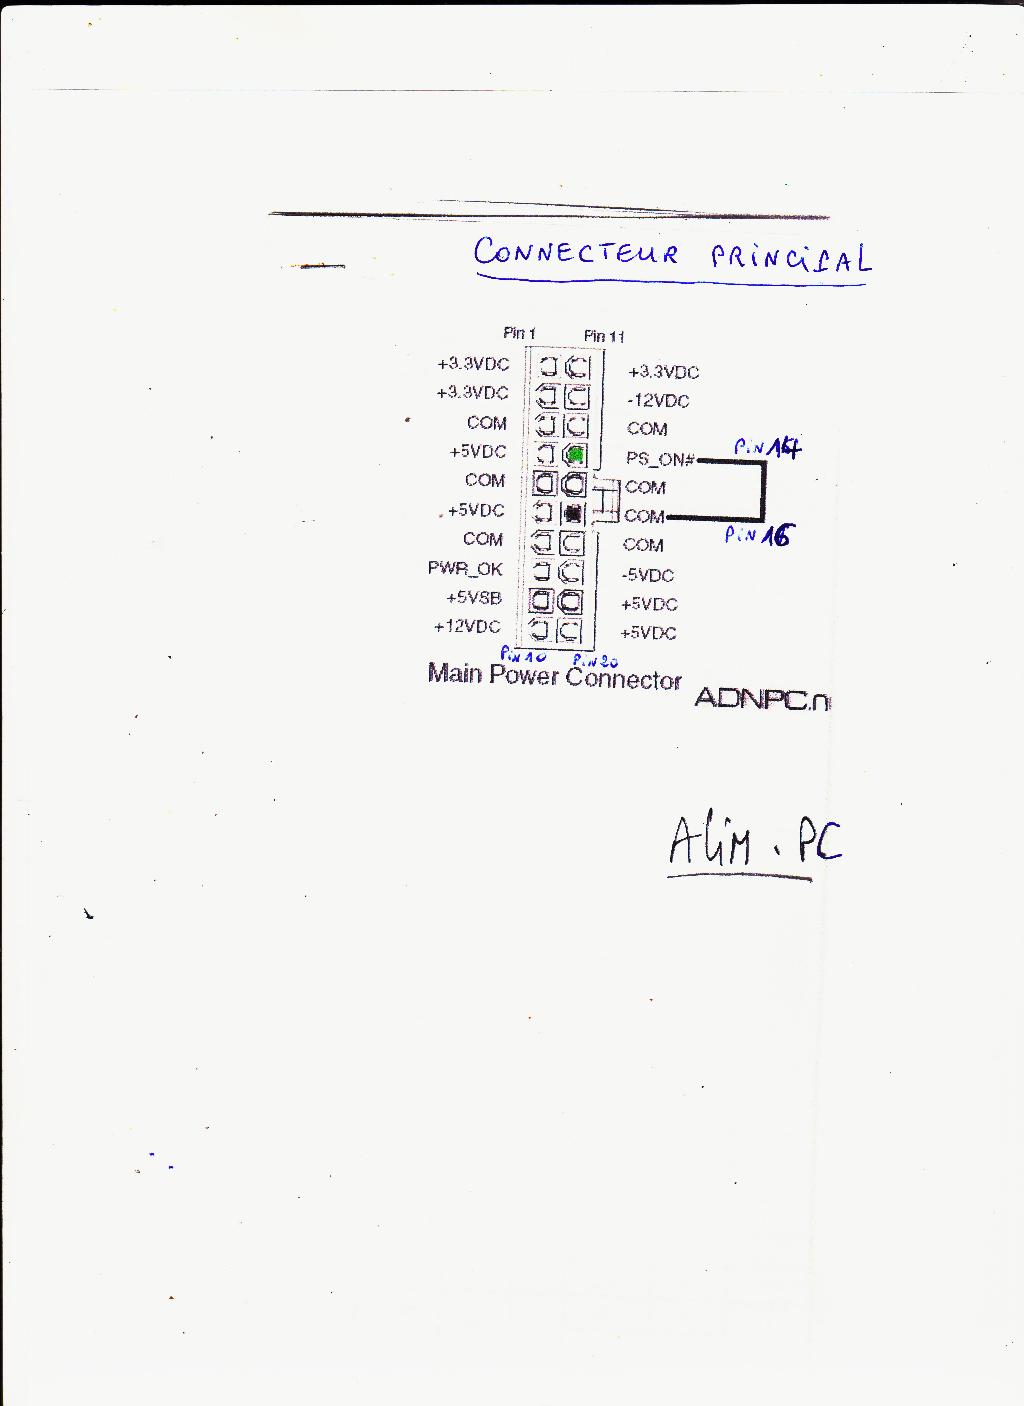 CONNECTEUR PRINCIPAL
Pin 1 Pin 11
+3.3VDC +3.3VDC
+3.3VDC -12VDC
COM COM
+5VDC PS_ON# PiN 14
COM COM
+5VDC COM PiN 16
COM COM
PWR_OK -5VDC
+5VSB +5VDC
+12VDC +5VDC
PiN 10 PiN 20
Main Power Connector
ADNPC.n
Alim. PC